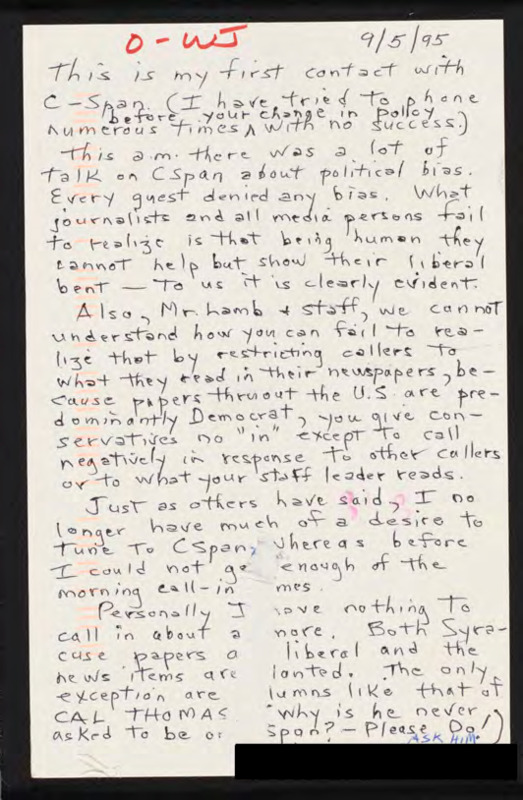 O-WJ
9/5/95
This is my first contact with
C-Span. (I have tried to phone
before your change in policy
numerous times ^ with no success.)
This a.m. there was a lot of
talk on CSpan about political bias.
Every guest denied any bias. What
journalists and all media persons fail
to realize is that being human they
cannot help but show their liberal
bent — to us it is clearly evident.
Also, Mr. Lamb & staff, we cannot
understand how you can fail to rea-
lize that by restricting callers to
what they read in their newspapers, be-
cause papers thruout the U.S. are pre-
dominantly Democrat, you give con-
servatives no "in" except to call
negatively in response to other callers
or to what your staff leader reads.
Just as others have said, I no
longer have much of a desire to
tune to CSpan, whereas before
I could not ge enough of the
morning call-in mes.
Personally I have nothing to
call in about a more. Both Syra-
cuse papers a liberal and the
news items are lanted. The only
exception are lumns like that of
CAL THOMAS "Why is he never
asked to be o span? — Please Do!)
ASK HIM.